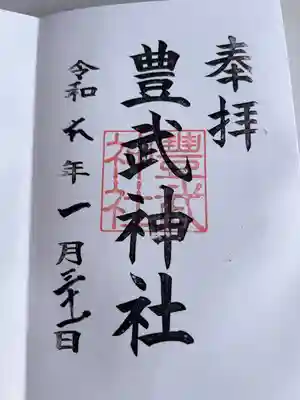 奉拝
豊武神社
豐武神社
令和六年一月三十一日